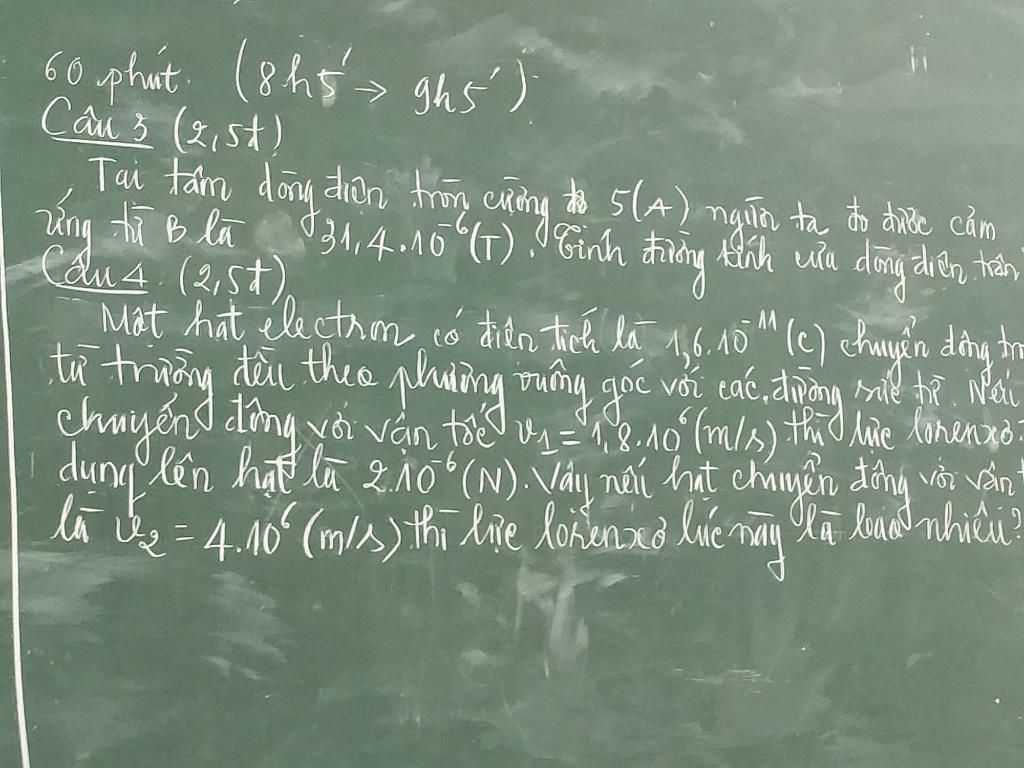 60 phút. (8h5' → 9h5')
Câu 3 (2,5đ)
Tại tâm dòng điện tròn cường độ 5(A) người ta đo được cảm
ứng từ B là 31,4.10⁻⁶(T). Tính đường kính của dòng điện tròn
Câu 4. (2,5đ)
Một hạt electron có điện tích là 1,6.10⁻¹⁹ (C) chuyển động
từ trường đều theo phương vuông góc với các đường sức từ. Nếu
chuyển động với vận tốc v₁ = 1,8.10⁶(m/s) thì lực lorenxơ
dụng lên hạt là 2.10⁻⁶ (N). Vậy nếu hạt chuyển động với vận
là v₂ = 4.10⁶ (m/s) thì lực lorenxơ lúc này là bao nhiêu?